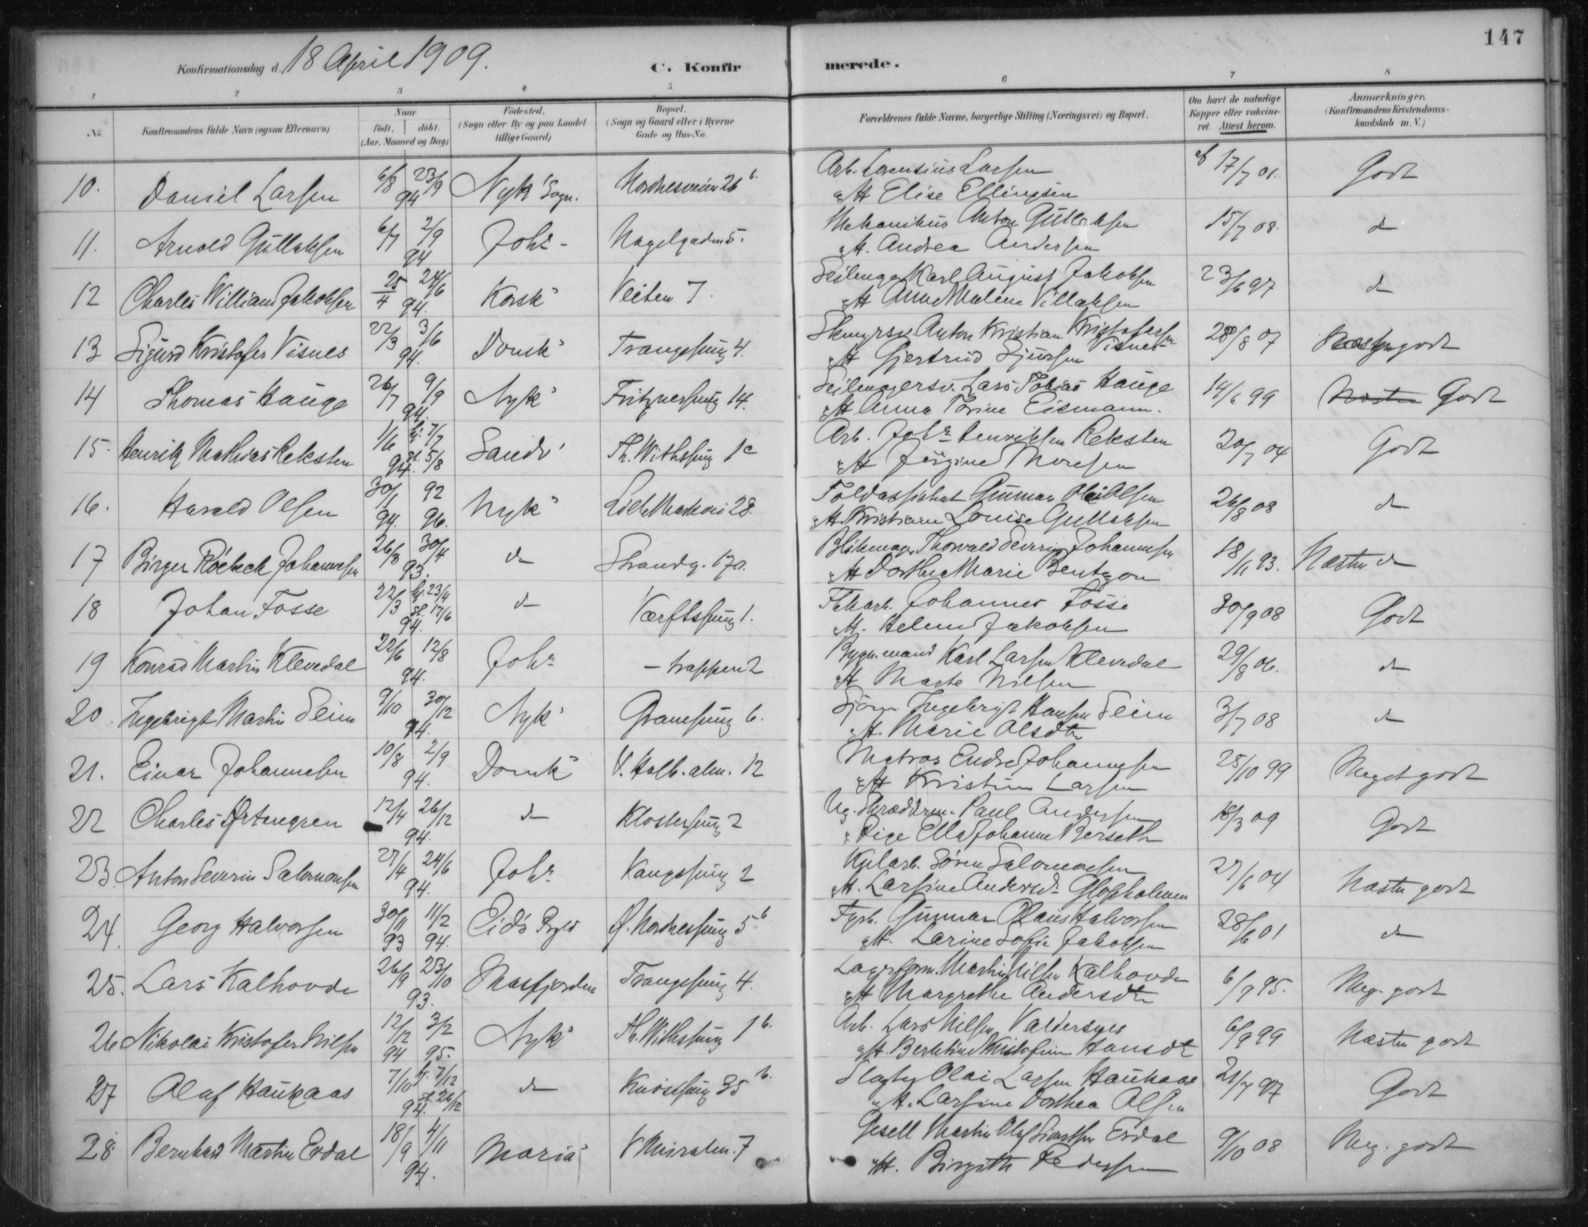 147
Konfirmationsdag d. 18 April 1909.
C. Konfirmerede.
1 2 3 4 5 6 7 8
No. Konfirmandens fulde Navn (ogsaa Efternavn) Naar født. døbt. (Aar, Maaned og Dag) Fødested. (Sogn eller By og paa Landet tillige Gaard) Bopæl. (Sogn og Gaard eller i Byerne Gade og Hus-No. Forældrenes fulde Navne, borgerlige Stilling (Næringsvei) og Bopæl. Om havt de naturlige Kopper eller vakcineret. Attest herom. Anmærkninger. (Konfirmandens Kristendomskundskab m. V.)
10. Daniel Larsen 6/8 23/9 94 Nyk' Sogn. Nordnesveien 26 b. Arb. Lorentsius Larsen
& H. Elise Ellingsen 17/7 01. Godt
11. Arnold Gullaksen 6/7 2/9 94 Joh's Nagelgaden 5. Mekanikus Anton Gullaksen
& H. Andrea Andersen 15/7 08. d
12 Charles William Jakobsen 25/4 24/6 94. Korsk' Veiten 7. Karl August Jakobsen
& H. Anne Malene Villaksen 23/6 97 d
13 Sigurd Kristofer Visnes 22/3 3/6 94. Domk' Trangesmug 4. Anton Kristian Kristofersen Visnes
& H. Gjertrud Sjursen 28/8 07 Næsten godt
14 Thomas Hauge 26/7 9/9 94. Nyk' Fritznersmug 14. Lars Tobias Hauge
& H. Anna Torine Eismann. 14/6 99 Næsten Godt
15. Henrik Mathias Reksten 1/6 hj. 7/7 94. st. 5/8 Sandv' Th. Withsmug 1c Arb. Johs Henriksen Reksten
& H. Jørgine Monsen 20/7 04 Godt
16. Harald Olsen 30/1 94. 92 96. Nyk' 28. Toldassistent Gunnar Olai Olsen
& H. Kristiane Louise Gullaksen 26/8 08 d
17 Birger Röbeck Johannesen 26/8 30/4 93. d Strandg. 170. Thorvald Severin Johannesen
& H. Dorthea Marie Bentzon 18/11 93. Næsten d
18 Johan Fosse 22/3 hj. 23/4 94. st. 17/6 d Værftssmug 1. Fabarb. Johannes Fosse
& H. Helene Jakobsen 30/9 08 Godt
19 Konrad Martin Klevedal 22/6 12/8 94. Joh's - trappen 2 Bygn.mand Karl Larsen Klevedal
& H. Marte Nilsen 29/8 06. d
20. Ingebrigt Martin Seim 9/10 30/12 94. Nyk' Granesmug 6. Sjöm. Ingebrigt Hansen Seim
& H. Marie Olsdtr 3/7 08 d
21. Einar Johannesen 10/8 2/9 94. Domk' V. Halb. alm. 12 Matros Endre Johannesen
& H. Kristine Larsen 25/10 99 Meget godt
22 Charles Örtengren 12/4 26/12 94. d Klostersmug 2 Ug. Skræddsv. Paul Andersen
& Pige Ella Johanne Berseth 18/3 09 Godt
23 Anton Severin Salomonsen 27/4 24/6 94. Joh's Kaugssmug 2 Kularb. Sören Salomonsen
& H. Larsine Andersdr. 27/6 04 Næsten godt
24. Georg Halvorsen 30/11 93 11/2 94. Eid's Ø. Nordnessmug 5 b Fyrb. Gunnar Olaus Halvorsen
& H. Larine Sofie Jakobsen 28/6 01 d
25. Lars Kalhovde 26/9 23/10 93. Masfjorden Trangesmug 4. Lagerform. Martin Nilsen Kalhovde
& H. Margrethe Andersdtr 6/9 95. Meg. godt
26 Nikolai Kristofer Nilsen 12/12 94 3/2 95. Nyk' Th. Withsmug 1 b. Arb. Lars Nilsen
& H. Berthine Kristofine Hansdtr 6/9 99 Næsten godt
27 Olaf Haukaas 7/10 hj. 7/12 94. st. 26/12 d Knösesmug 35 b. Olai Larsen Haukaas
& H. Larsine Dorthea Olsen 21/7 97 Godt
28 Bernhard Martin Erdal 18/9 4/11 94. Maria' V. Muralm. 7 Gesell Martin Olaf Erdal
& H. Birgitte Pedersen 9/10 08 Meg. godt